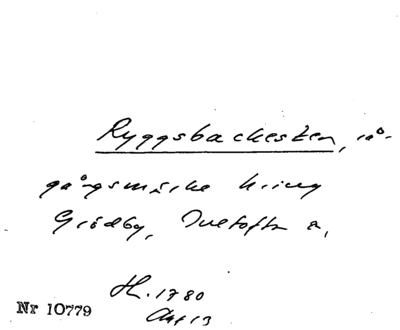 Ryggsbackesten, rå-
gångsmärke kring
Grödby, Tuetofta a,
H. 1780
Akt 13
Nr 10779